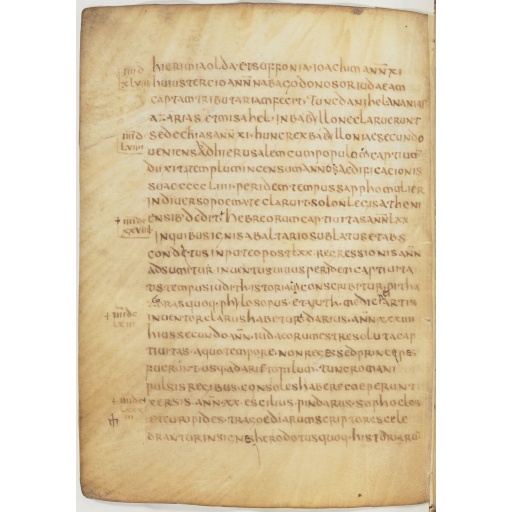 hieremia olda et suffonia ioachim ann xi
huius tercio ann nabacodonosor iudaeam
captam tributariam fecit tunc danihel anania
azarias et misahel in babyllone claruerunt
sedechias ann xi hunc rex babylloniae secundo
ueniens ad hierusalem cum populo captium
duxit templum incensum anno aedificacionis
suae cccc liiii per idem tempus sappho mulier
in diuerso poemate claruit solon leges atheni
ensib dedit hebreorum captiuitas ann lxx
in quibus ignis ab altario sublatus et abs
conditus in puteo post lxx regressionis ann
adsumitur inuentus uiuus per idem captiuita
tis tempus iudith historia conscribitur pitha
goras quoq philosopus et
inuentor clarus habetur darius ann xxxiiii
huius secundo ann iudaeorum est resoluta cap
tiuitas a quo tempore non reges sed principes
fuerunt usq ad aristopolum tunc romani
pulsis regibus consoles habere coeperunt
xersis ann xx escilius pindarus sophocles
et euripides tragoediarum scriptores cele
brantur insignes herodotus quoq historiaru